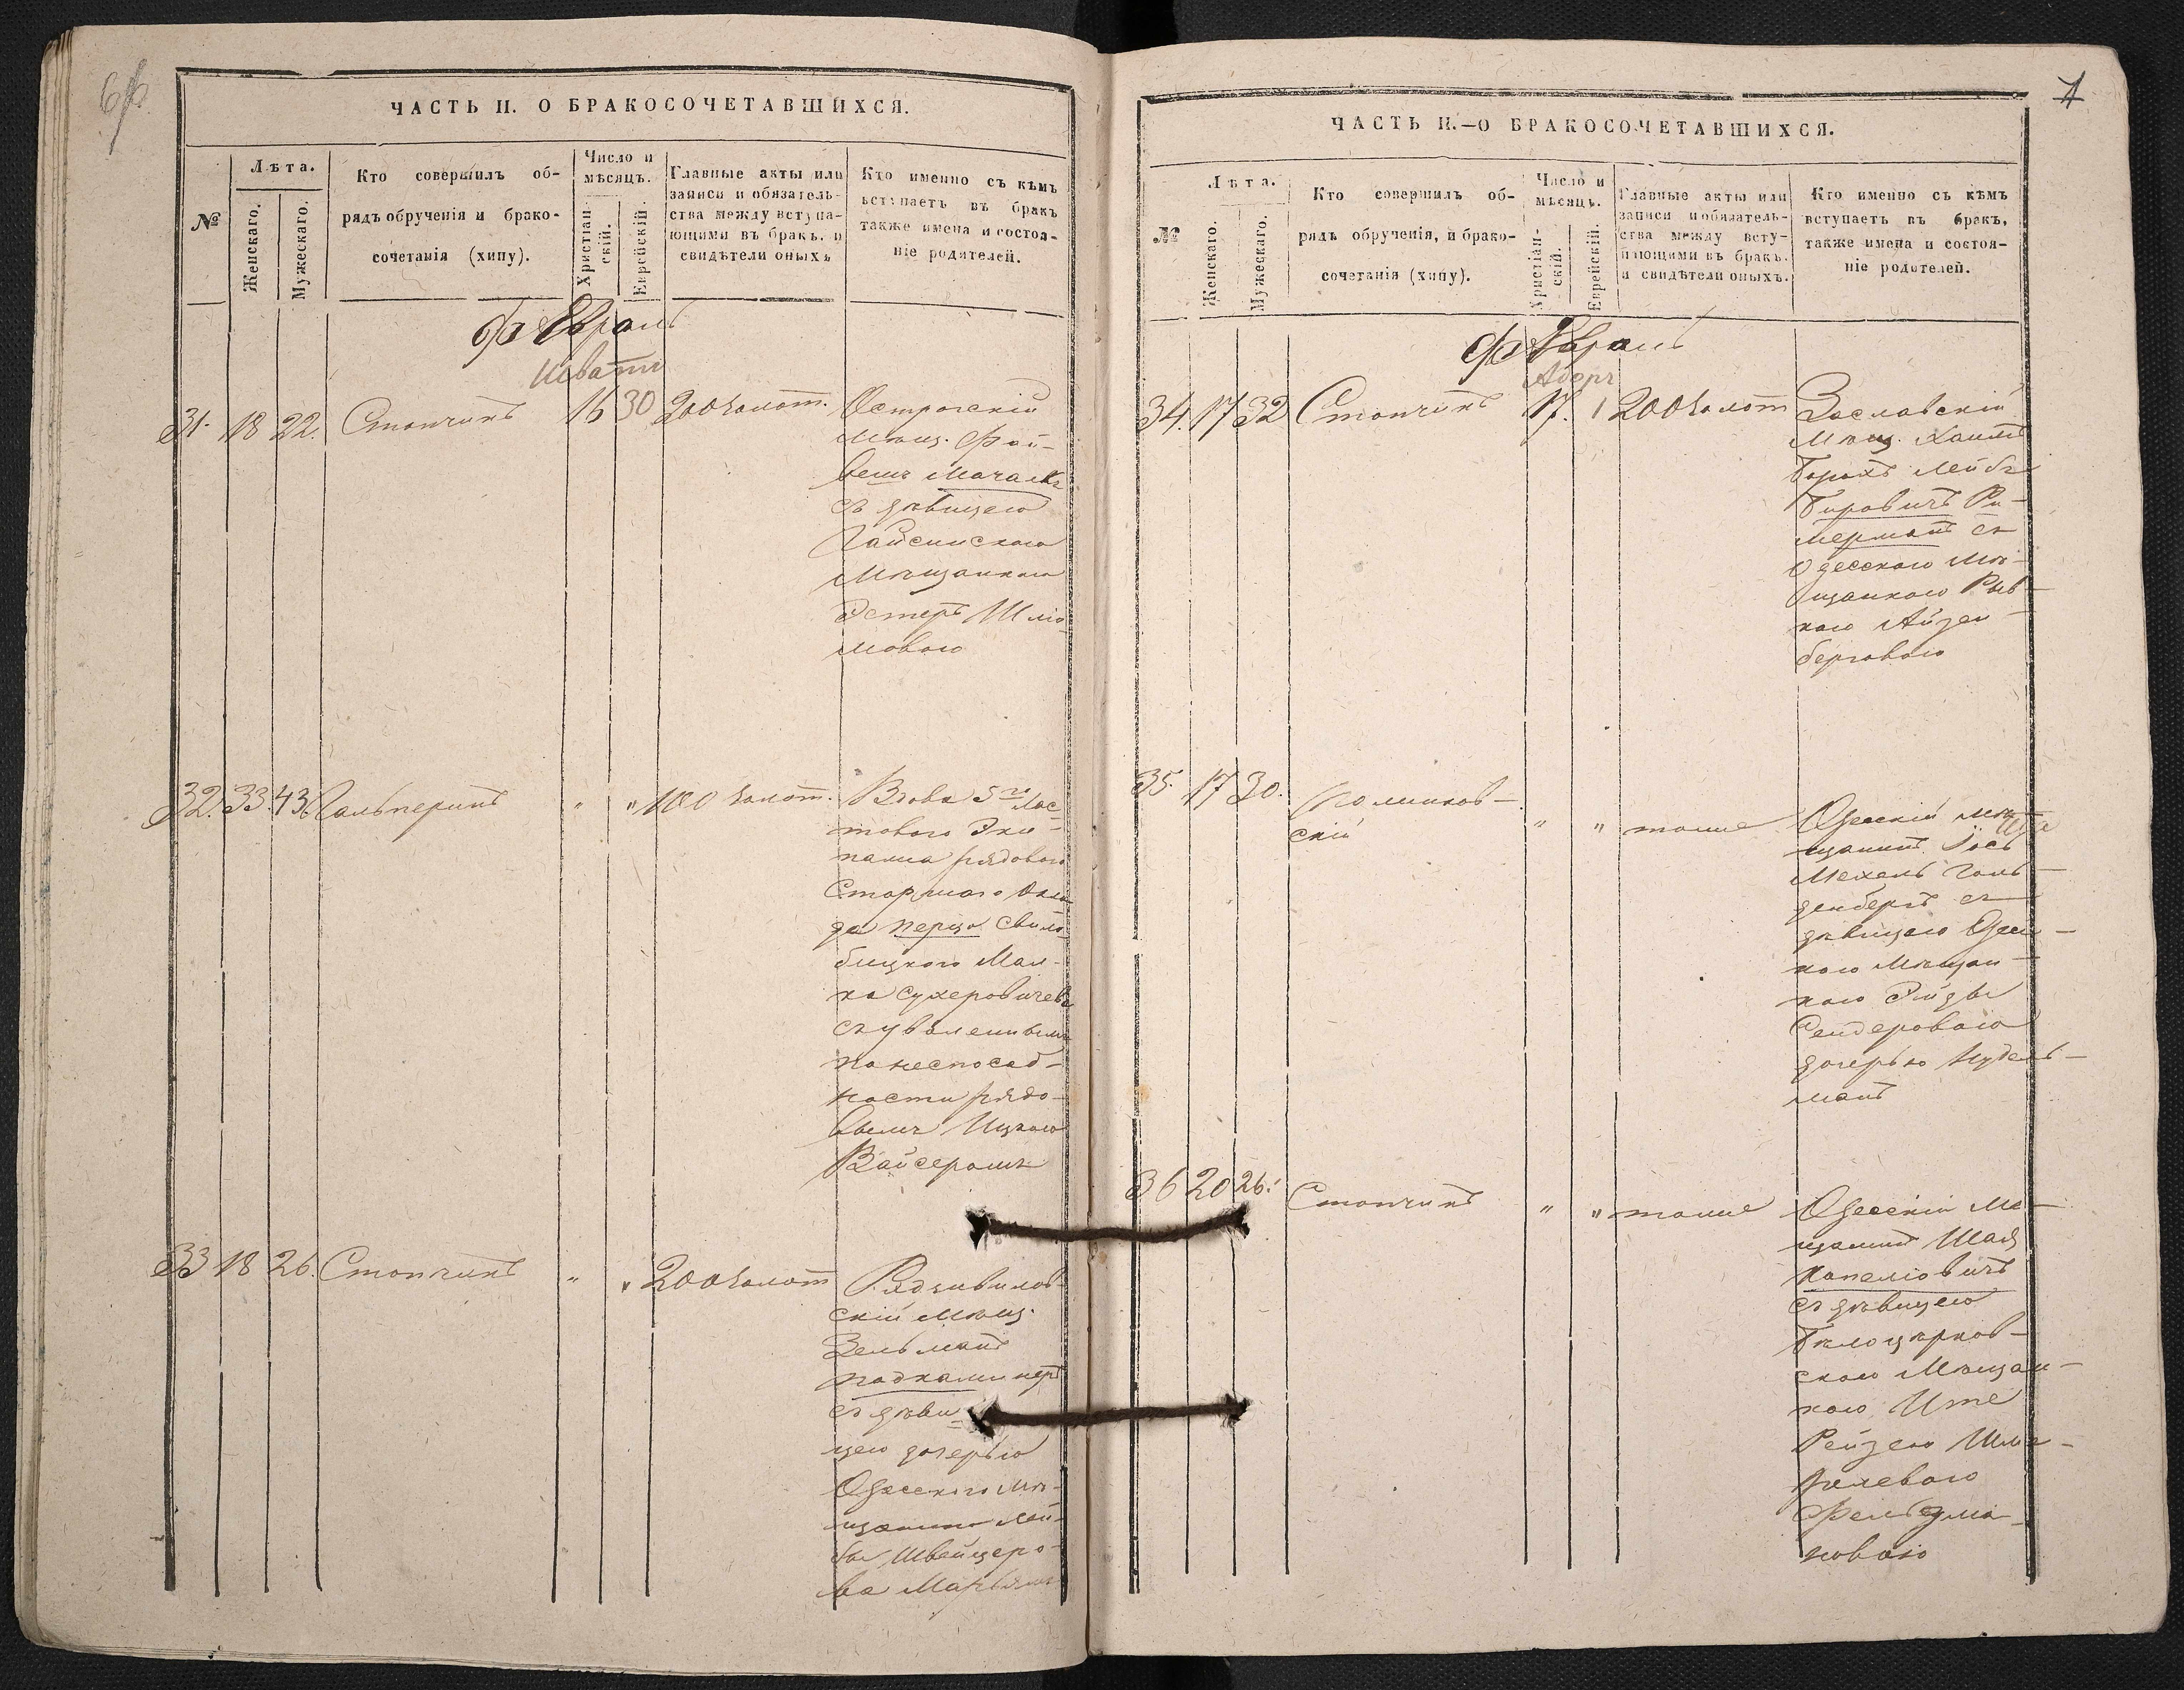 ЧАСТЬ II. О БРАКОСОЧЕТАВШИХСЯ.
№
Лѣта.
Женскаго.
Мужескаго.
Кто совершилъ об-
рядъ обрученія и брако-
сочетанія (хипу).
Число и
мѣсяцъ.
Христіан-
скій.
Еврейскій.
Главные акты или
записи и обязатель-
ства между вступа-
ющими въ бракъ, и
свидѣтели оныхъ
Кто именно съ кѣмъ
вступаетъ въ бракъ
также имена и состоя-
ніе родителей.
Февраль
Шватъ
31. 18 22. Стопчикъ 16 30 200 золот. Острогскій
Мѣщ. Фай-
вешъ Мочалкъ
съ дѣвицею
Гайсинскою
Мѣщанкою
Эстеръ Шліо-
мовою
32. 33. 43 Гальперинъ " " 100 золот. Вдова 5го Лас-
товаго Эки-
пажа рядоваго
Старшаго Окла-
да Перца Свило-
бицкого Мал-
ка Сухеровичева
съ уволеннымъ
по неспособ-
ности рядо-
вымъ Ицкою
Вайсеромъ
33 18 26. Стопчикъ " " 200 золот Радзивилов-
скій Мѣщ.
Зельманъ
Подкаминеръ
съ дѣви-
цею дочерью
Одесского мѣ-
щанина Лей-
бы Швейцеро-
ва Марьямъ
7
ЧАСТЬ II.—О БРАКОСОЧЕТАВШИХСЯ.
№
Лѣта.
Женскаго.
Мужескаго.
Кто совершилъ об-
рядъ обрученія, и брако-
сочетанія (хипу).
Число и
мѣсяцъ.
Христіан-
скій.
Еврейскій.
Главные акты или
записи и обязатель-
ства между всту-
пающими въ бракъ,
и свидѣтели оныхъ.
Кто именно съ кѣмъ
вступаетъ въ бракъ,
также имена и состоя-
ніе родителей.
Февраль
Адоръ
34. 17 32 Стопчикъ 17. 1 200 золот Заславскій
Мѣщ. Хаимъ
Борохъ Лейбъ
Бировичъ Ри-
мерманъ съ
Одесскою Мѣ-
щанкою Рыв-
кою Айзен-
берговою
35. 17 30.
скій " " тоже Одесскій мѣ-
щанинъ Іосъ
Мехель Голь-
денбергъ съ
дѣвицею Одес-
кою Мѣщан-
кою Рейзы
Сендеровою
дочерью Нудель-
манъ
36 20 26. Стопчикъ " " тоже Одесскій Мѣ-
щанинъ Шая
Копеліовичъ
съ дѣвицею
Бѣлоцерков-
скою Мѣщан-
кою Ите
Рейзею Шме-
релевою
Фельдма-
новою